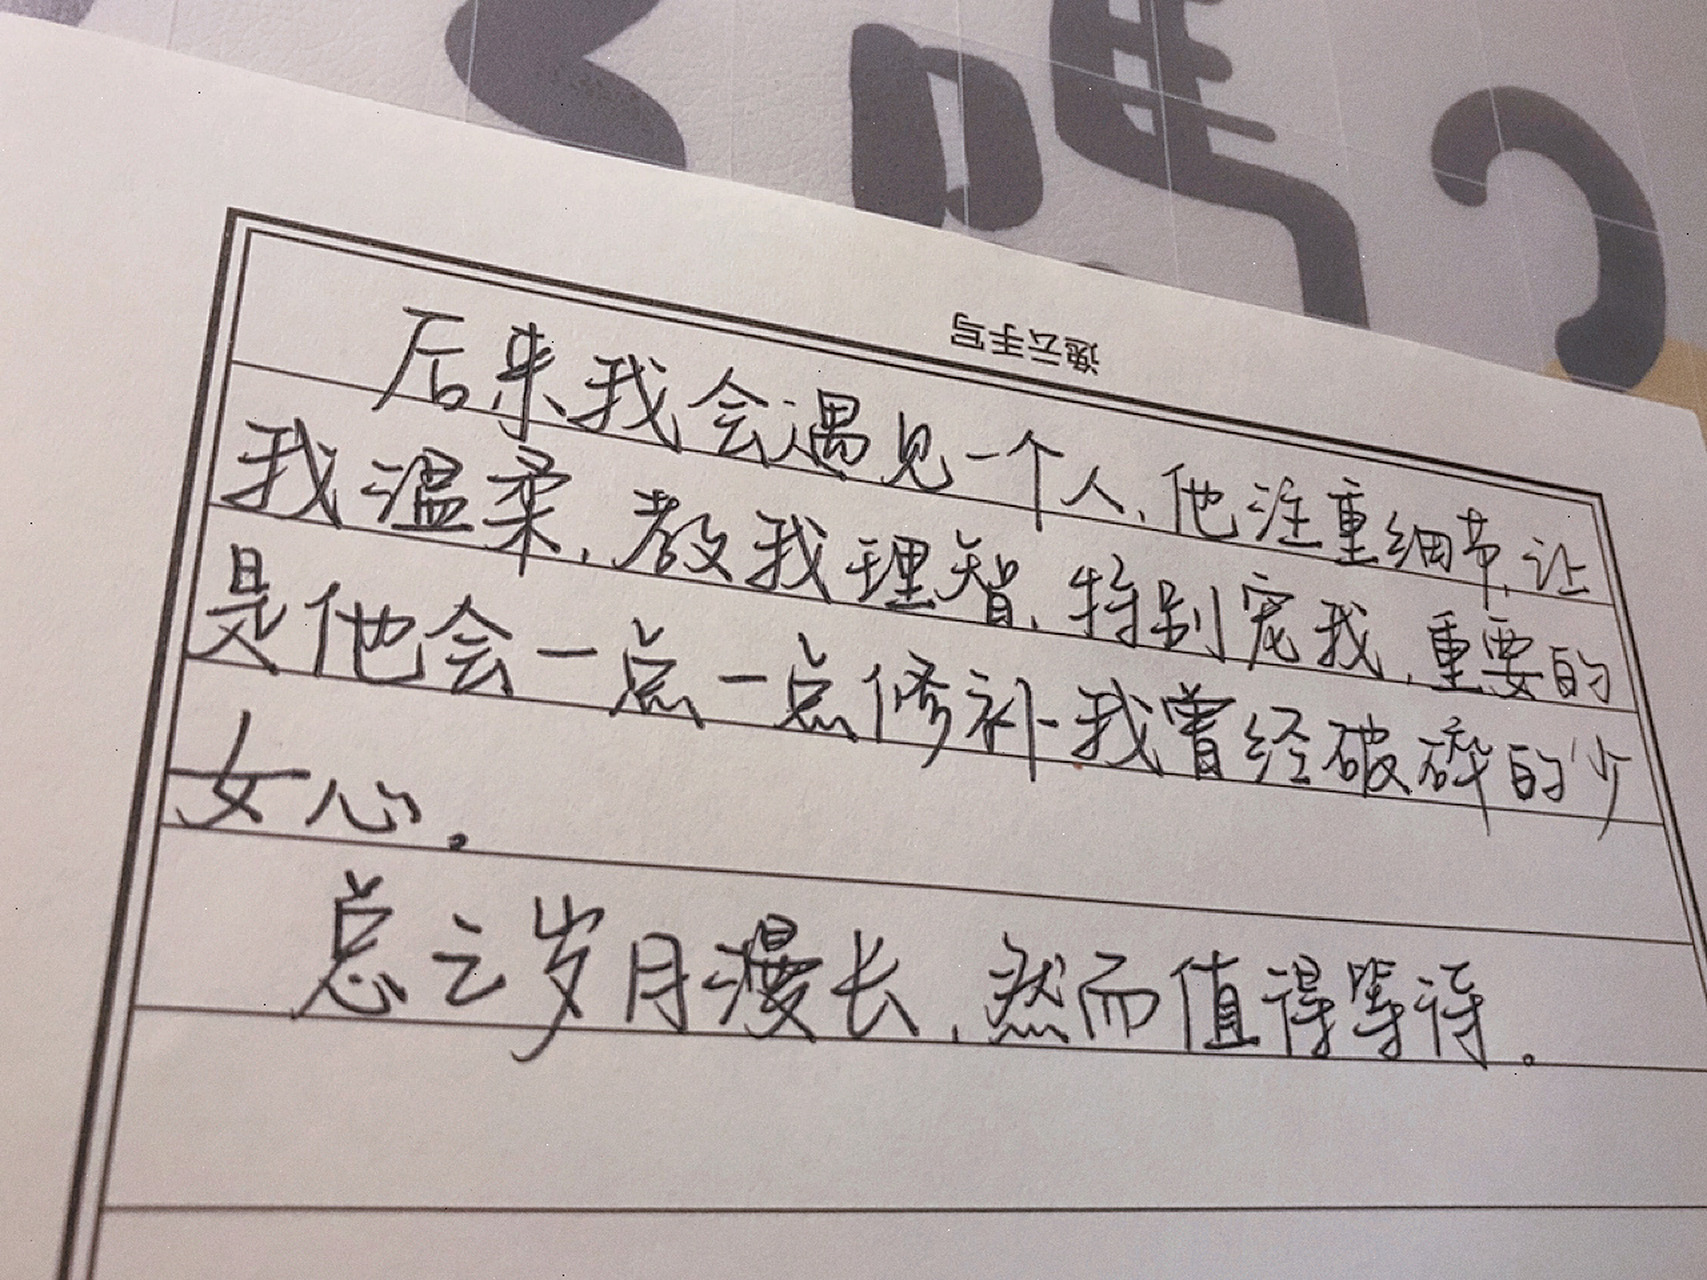 逸云手写
后来我会遇见一个人,他注重细节,让
我温柔,教我理智,特别宠我,重要的
是他会一点一点修补我曾经破碎的少
女心。
总之岁月漫长,然而值得等待。